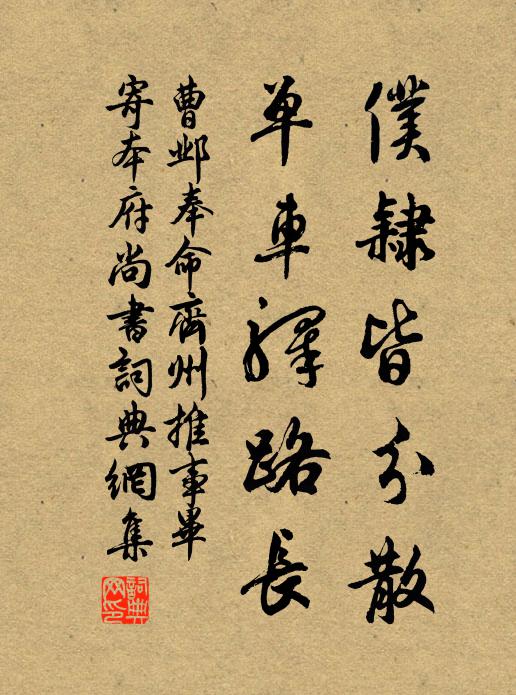 僕隸皆分散
單車驛路長
曹鄴奉命齊州推事畢
寄本府尚書詞典網集
詞典網印